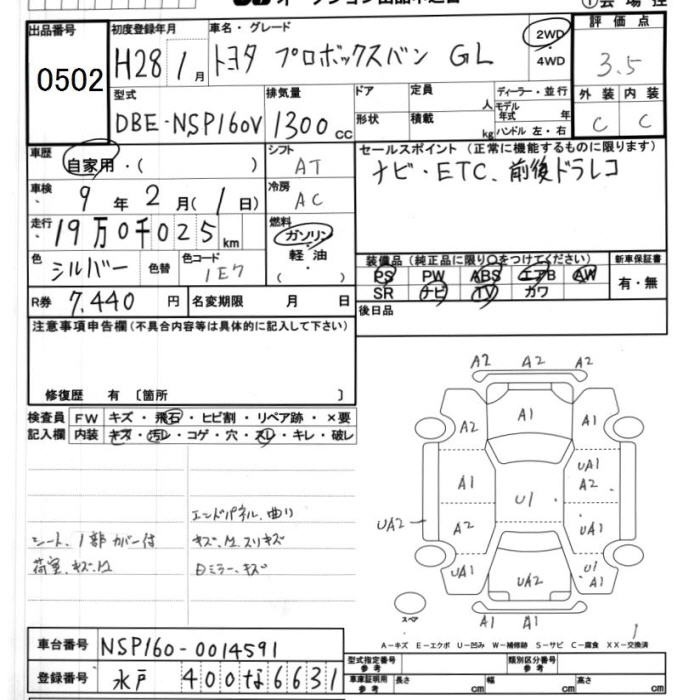 オークション出品申込書
①会場控
出品番号 0502
初度登録年月 H28年 1月
車名・グレード トヨタ プロボックスバン GL
2WD ・ 4WD
評価点 3.5
型式 DBE-NSP160V
排気量 1300 cc
ドア
形状
定員 人
積載 kg
ディーラー・並行
モデル年式 年
ハンドル 左・右
外装 C
内装 C
車歴 自家用・( )
シフト AT
セールスポイント (正常に機能するものに限ります)
ナビ・ETC、前後ドラレコ
車検 9年 2月(1日)
冷房 AC
走行 19万0千025km
燃料 ガソリン 軽油 ( ・ )
色 シルバー
色替
色コード 1E7
装備品(純正品に限り○をつけてください)
PS PW ABS エアB AW
SR ナビ TV カワ
新車保証書 有・無
R券 7,440 円
名変期限 月 日
後日品
注意事項申告欄(不具合内容等は具体的に記入して下さい)
修復歴 有 〔箇所 〕
検査員記入欄
FW キズ・飛石・ヒビ割・リペア跡・×要
内装 キズ・汚レ・コゲ・穴・スレ・キレ・破レ
エンドパネル、曲り
シート、1部カバー付
キズ、M、スリキズ
荷室、キズ、M
Dミラー、キズ
A2 A2 A2
A2 A1 A1
A1 UA1 A2
U1
UA2 A2 UA1
UA1 UA2 U1 A1
A1 A1
スペア
A-キズ E-エクボ U-凹み W-補修跡 S-サビ C-腐食 XX-交換済
車台番号 NSP160-0014591
登録番号 水戸 400 な 6631
型式指定番号 参考
類別区分番号 参考
車庫証明用 参考 長さ cm 幅 cm 高さ cm